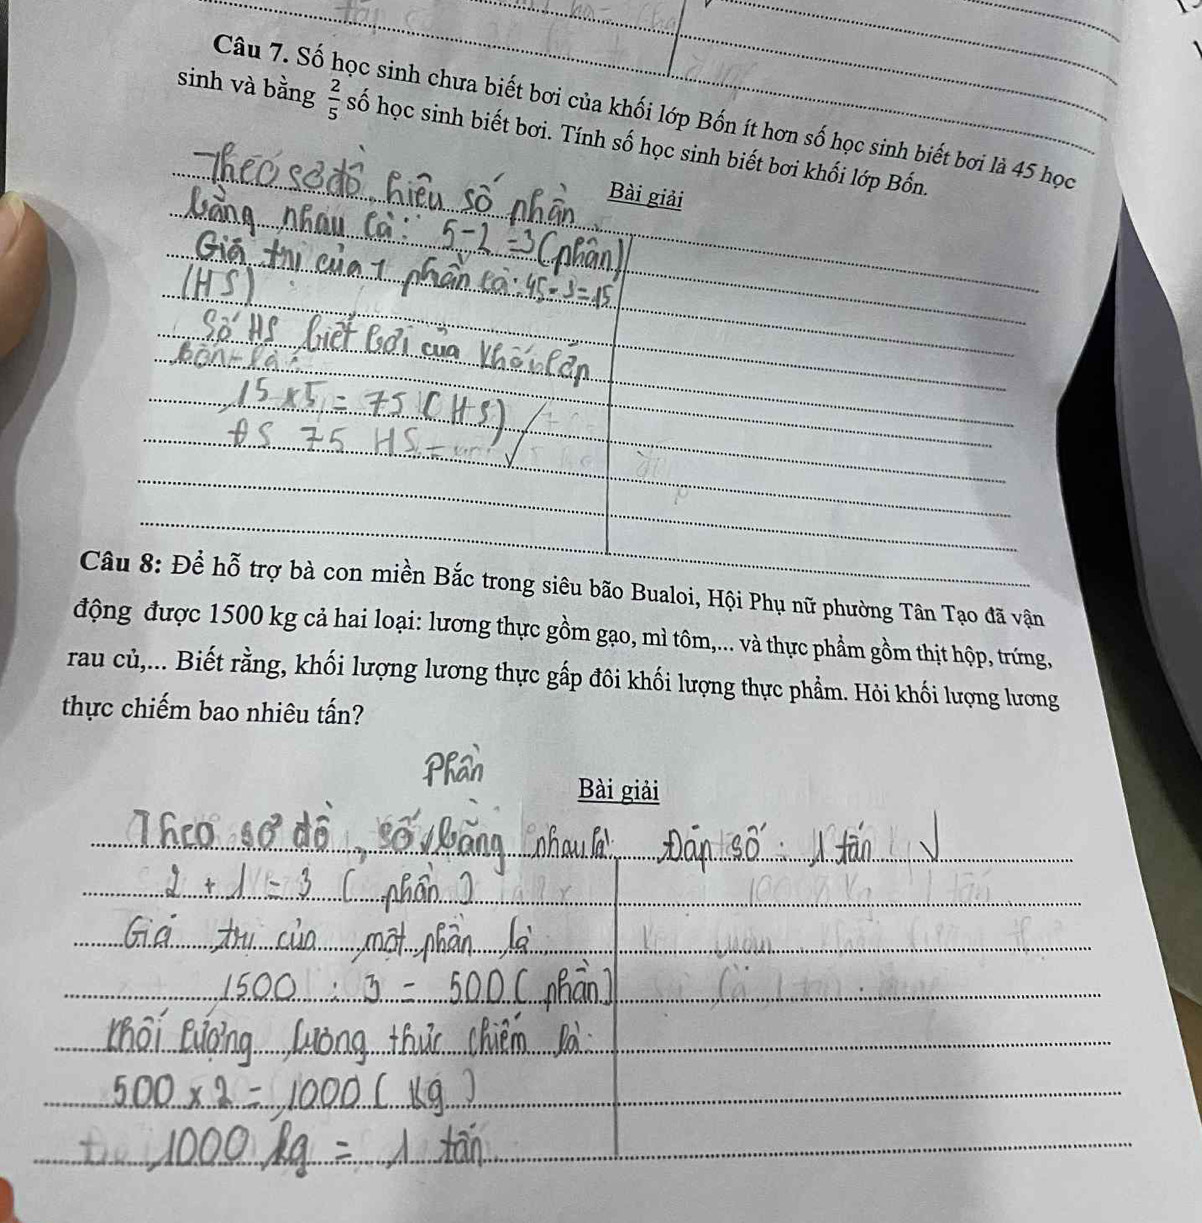 Câu 7. Số học sinh chưa biết bơi của khối lớp Bốn ít hơn số học sinh biết bơi là 45 học
sinh và bằng 2/5 số học sinh biết bơi. Tính số học sinh biết bơi khối lớp Bốn.
Bài giải
Theo sơ đồ, hiệu số phần
bằng nhau là: 5-2=3(phần)
Giá trị của 1 phần là: 45:3=15
(HS)
Số HS biết bơi của khối lớp
bốn là:
15 x 5 = 75 (HS)
ĐS 75 HS
Câu 8: Để hỗ trợ bà con miền Bắc trong siêu bão Bualoi, Hội Phụ nữ phường Tân Tạo đã vận
động được 1500 kg cả hai loại: lương thực gồm gạo, mì tôm,... và thực phẩm gồm thịt hộp, trứng,
rau củ,... Biết rằng, khối lượng lương thực gấp đôi khối lượng thực phẩm. Hỏi khối lượng lương
thực chiếm bao nhiêu tấn?
Bài giải
phần
Theo sơ đồ, số bằng nhau là:
2 + 1 = 3 (phần)
Giá trị của một phần là
1500 : 3 = 500 (phần)
khối lượng lương thực chiếm là:
500 x 2 = 1000 (kg)
1000 kg = 1 tấn
Đáp số: 1 tấn